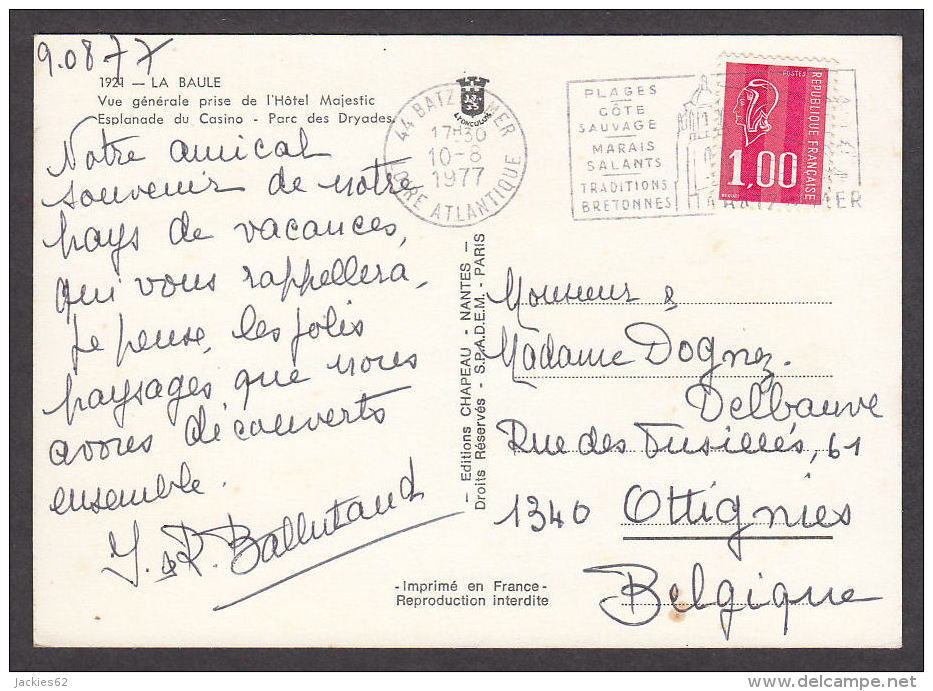 9.08.77
1921 — LA BAULE
Vue générale prise de l'Hôtel Majestic
Esplanade du Casino - Parc des Dryades
Notre amical
souvenir de notre
pays de vacances,
qui vous rappellera,
je pense, les jolis
paysages que nous
avons découverts
ensemble.
44 BATZ MER
17H30
10-8
1977
LOIRE ATLANTIQUE
PLAGES
CÔTE
SAUVAGE
MARAIS
SALANTS
TRADITIONS
BRETONNES
POSTES
RÉPUBLIQUE FRANÇAISE
1,00
— Editions CHAPEAU - NANTES —
Droits Réservés - S.P.A.D.E.M. - PARIS
Monsieur &
Madame Dognez.
Delbauve
Rue des Fusillés, 61
1340 Ottignies
Belgique
-Imprimé en France-
Reproduction interdite
jackies62
delcampe.net